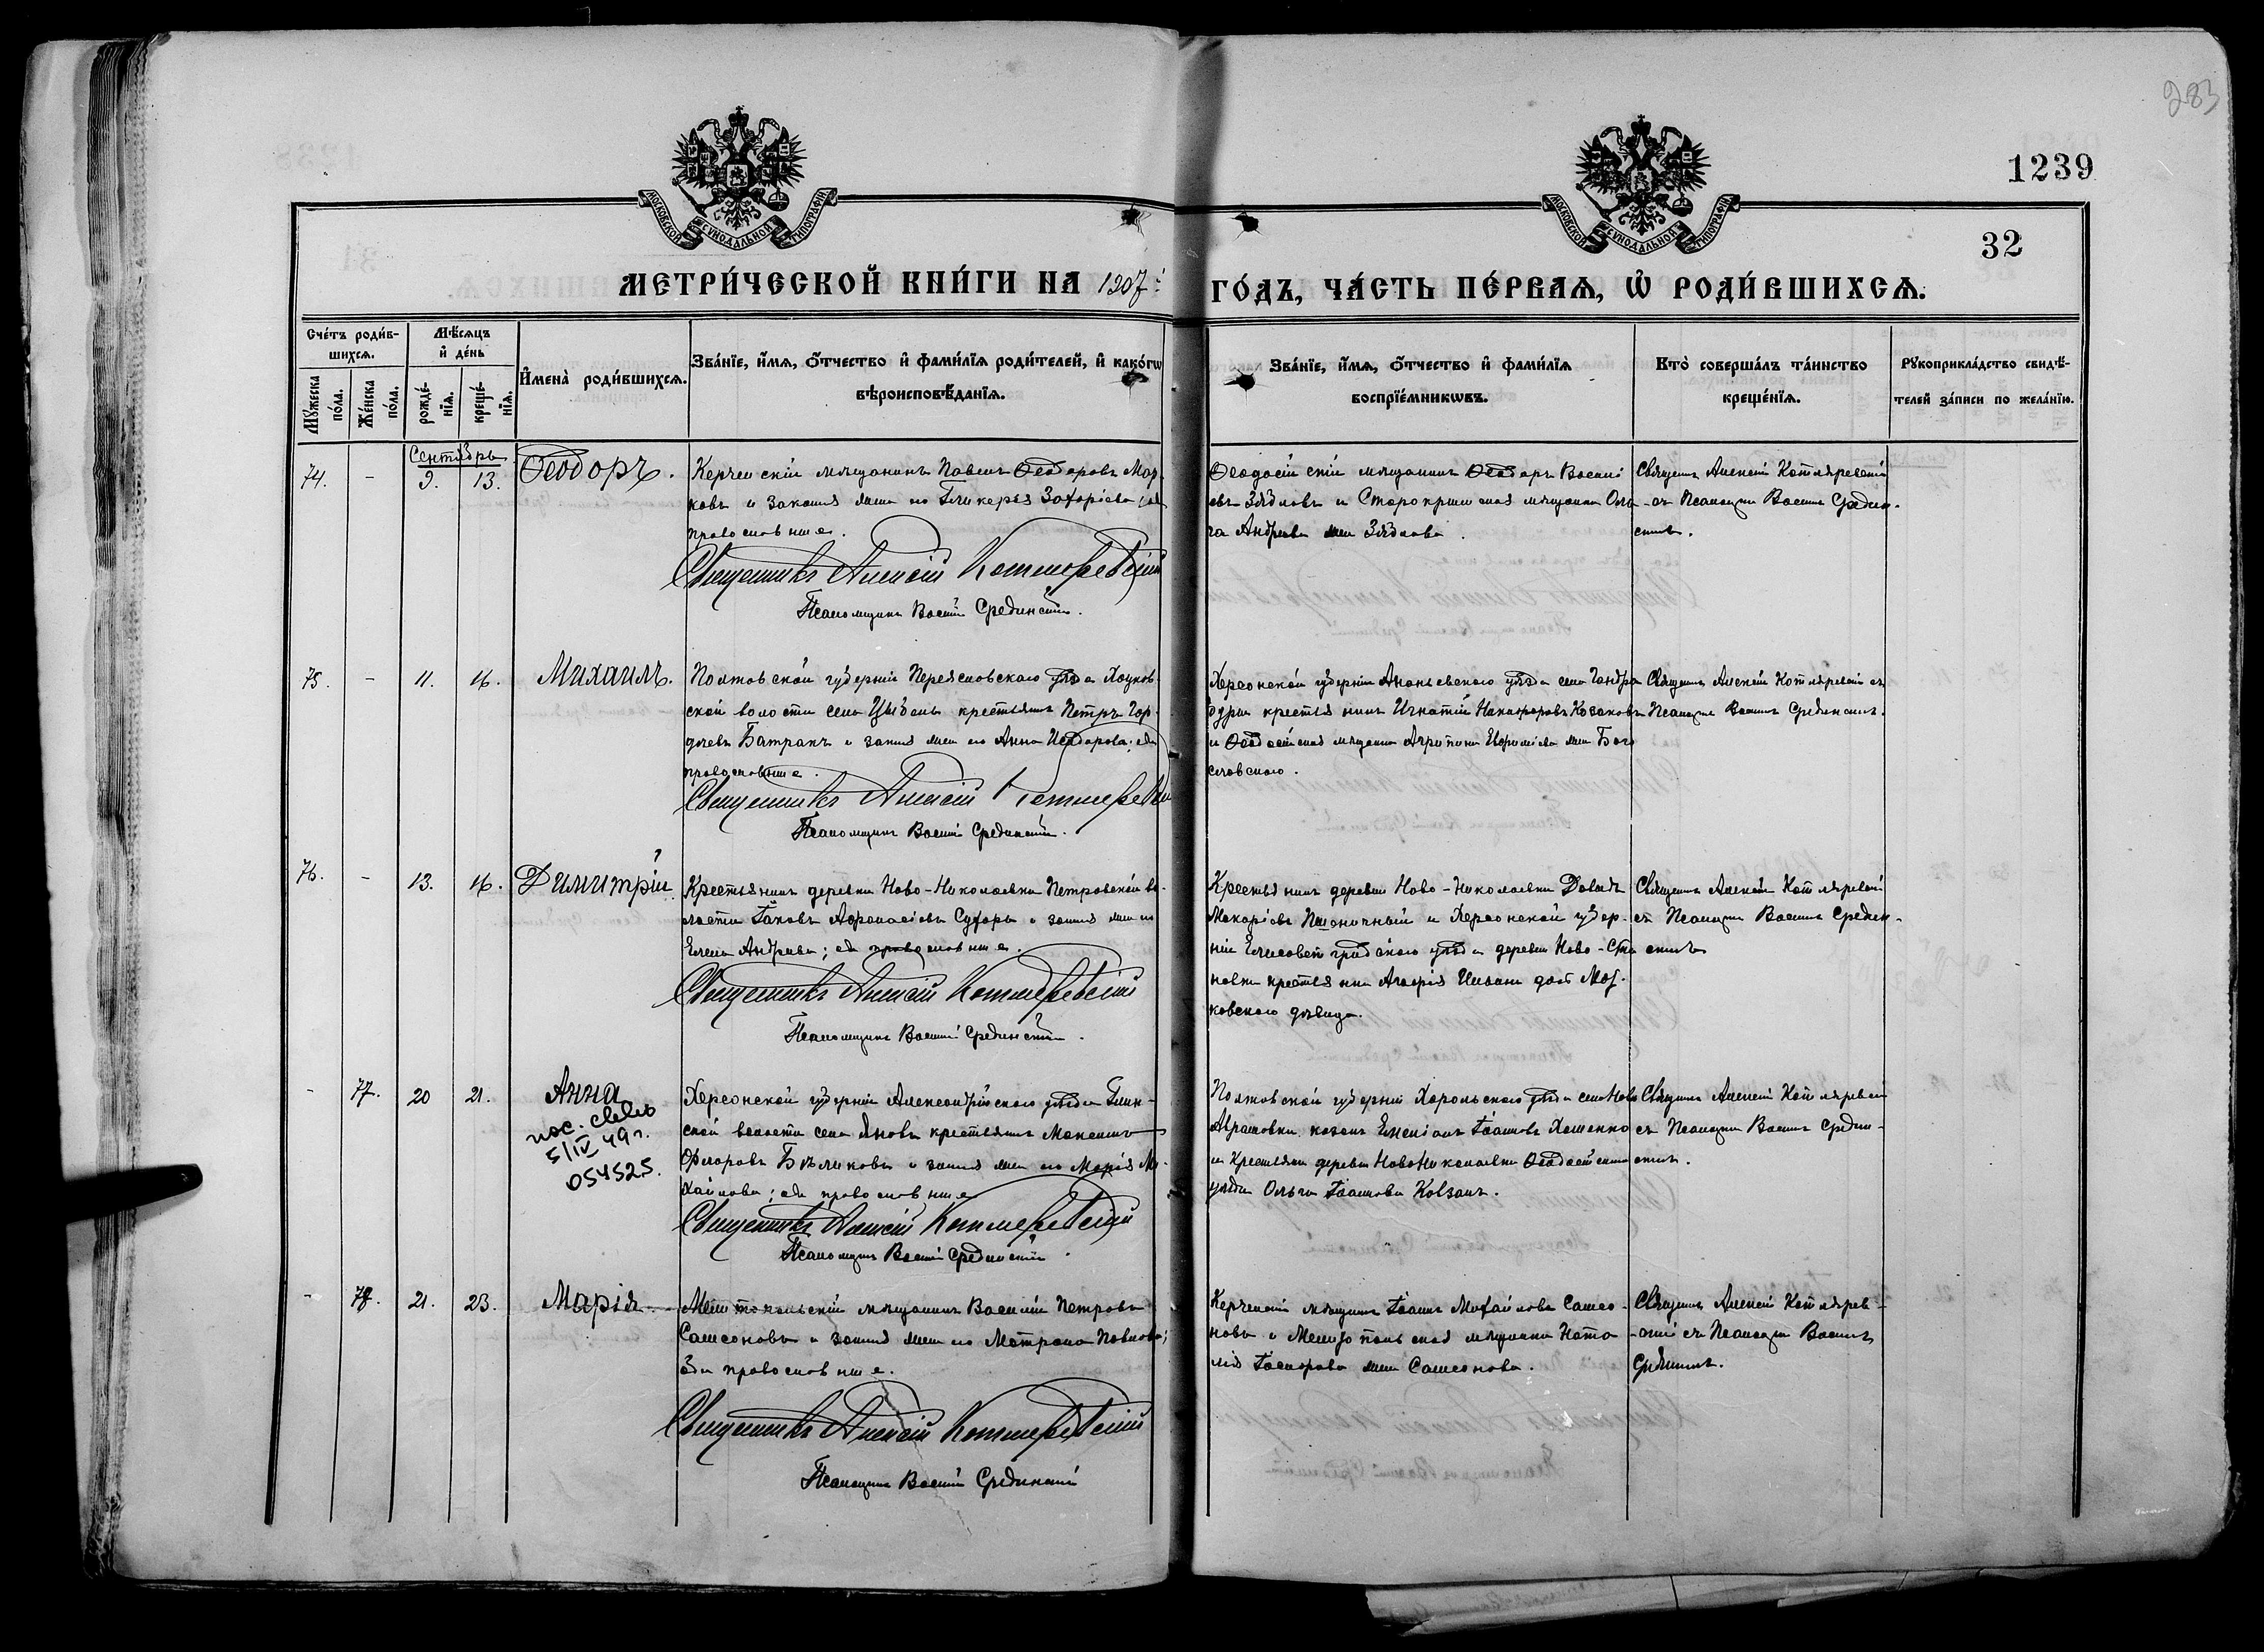 283
1239
32
МОСКОВСКОЙ СѴНОДАЛЬНОЙ ТИПОГРАФІИ
МОСКОВСКОЙ СѴНОДАЛЬНОЙ ТИПОГРАФІИ
МЕТРИ́ЧЕСКОЙ КНИ́ГИ НА 1907 г.
ГО́ДЪ, ЧА́СТЬ ПЕ́РВАѦ, Ѡ҆ РОДИ́ВШИХСѦ.
Сче́тъ роди́в-
шихсѧ.
Мѣ́сѧцъ
и҆ де́нь
Мꙋ́жеска по́ла.
Же́нска по́ла.
рожде́-
нїѧ.
креще́-
нїѧ.
И҆мена̀ роди́вшихсѧ.
Зва́нїе, и҆́мѧ, ѻ҆́тчество и҆ фами́лїѧ роди́телей, и҆ како́гѡ
вѣроисповѣ́данїѧ.
Зва́нїе, и҆́мѧ, ѻ҆́тчество и҆ фами́лїѧ
воспрїе́мникѡвъ.
Кто̀ соверша́лъ та́инство
креще́нїѧ.
Рꙋкоприкла́дство свидѣ́-
телей за́писи по жела́нїю.
Сентябрь
74. - 9. 13. Ѳеодоръ.
Керченскій мѣщанинъ Павелъ Ѳеодоровъ Мар-
ковъ и законная жена его Гликерія Захаріева; оба
православные.
Священникъ Алексій Котляревскій
Псаломщикъ Василій Срединскій.
Ѳеодосійскій мѣщанинъ Ѳеодоръ Василі
евъ Зябловъ и Старокрымская мѣщанка Оль
га Андреева жена Зяблова.
Священникъ Алексій Котляревскій
съ Псаломщи Василіемъ Средин-
скимъ.
75. - 11. 16. Михаилъ.
Полтавской губерніи Переясловскаго уѣзда Хоцков-
ской волости села Цыбель крестьянинъ Петръ Гор-
дѣевъ Батракъ и законная жена его Анна Исидорова; оба
православные.
Священникъ Алексій Котляревскій
Псаломщикъ Василій Срединскій.
Херсонской губерніи Ананьевскаго уѣзда села Гандра
буры крестьянинъ Игнатій Никифоровъ Казаковъ
и Ѳеодосійская мѣщанка Агрипина Евфиміева жена Бого
словскаго.
Священникъ Алексій Котляревскій съ
Псаломщ Василіемъ Срединскимъ.
76. - 13. 16. Димитрій
Крестьянинъ деревни Ново-Николаевки Петровской во-
лости Іаковъ Афанасіевъ Сухарь и законная жена его
Елена Андреева; оба православные.
Священникъ Алексій Котляревскій
Псаломщикъ Василій Срединскій.
Крестьянинъ деревни Ново-Николаевки Давидъ
Макаріевъ Пшеничный и Херсонской губер-
ніи Елисаветградскаго уѣзда деревни Ново-
крестьянка Иванова дочь
ковскаго дѣвица.
Священникъ Алексій Котляревскій
съ Псаломщи Василіемъ Средин-
скимъ
- 77. 20 21. Анна
5/IV 49 г.
054525.
Херсонской губерніи Александрійскаго уѣзда Глин-
ской волости села Янова крестьянинъ Максимъ
Ѳедоровъ Бѣликовъ и законная жена его Марія Ми-
хайлова; оба православные
Священникъ Алексій Котляревскій
Псаломщикъ Василій Срединскій.
Полтавской губерніи Хорольскаго уѣзда села Ново
Аврамовки казакъ Іоанновъ Хоменко
и крестьянка деревни НовоНиколаевки Ѳеодосійскаго
уѣзда Ольга Іоаннова Ковзанъ.
Священникъ Алексій Котляревскій
съ Псаломщ Василіемъ Средин-
скимъ.
- 78. 21. 23. Марія
Мелитопольскій мѣщанинъ Василій Петровъ
Самсоновъ и законная жена его Матрона Павлова;
оба православные.
Священникъ Алексій Котляревскій
Псаломщикъ Василій Срединскій
Керченскій мѣщанинъ Іоаннъ Михайловъ Самсо-
новъ и Мелитопольская мѣщанка Ната
лія жена Самсонова.
Священникъ Алексій Котлярев-
скій съ Псаломщ Василіемъ
Срединскимъ.